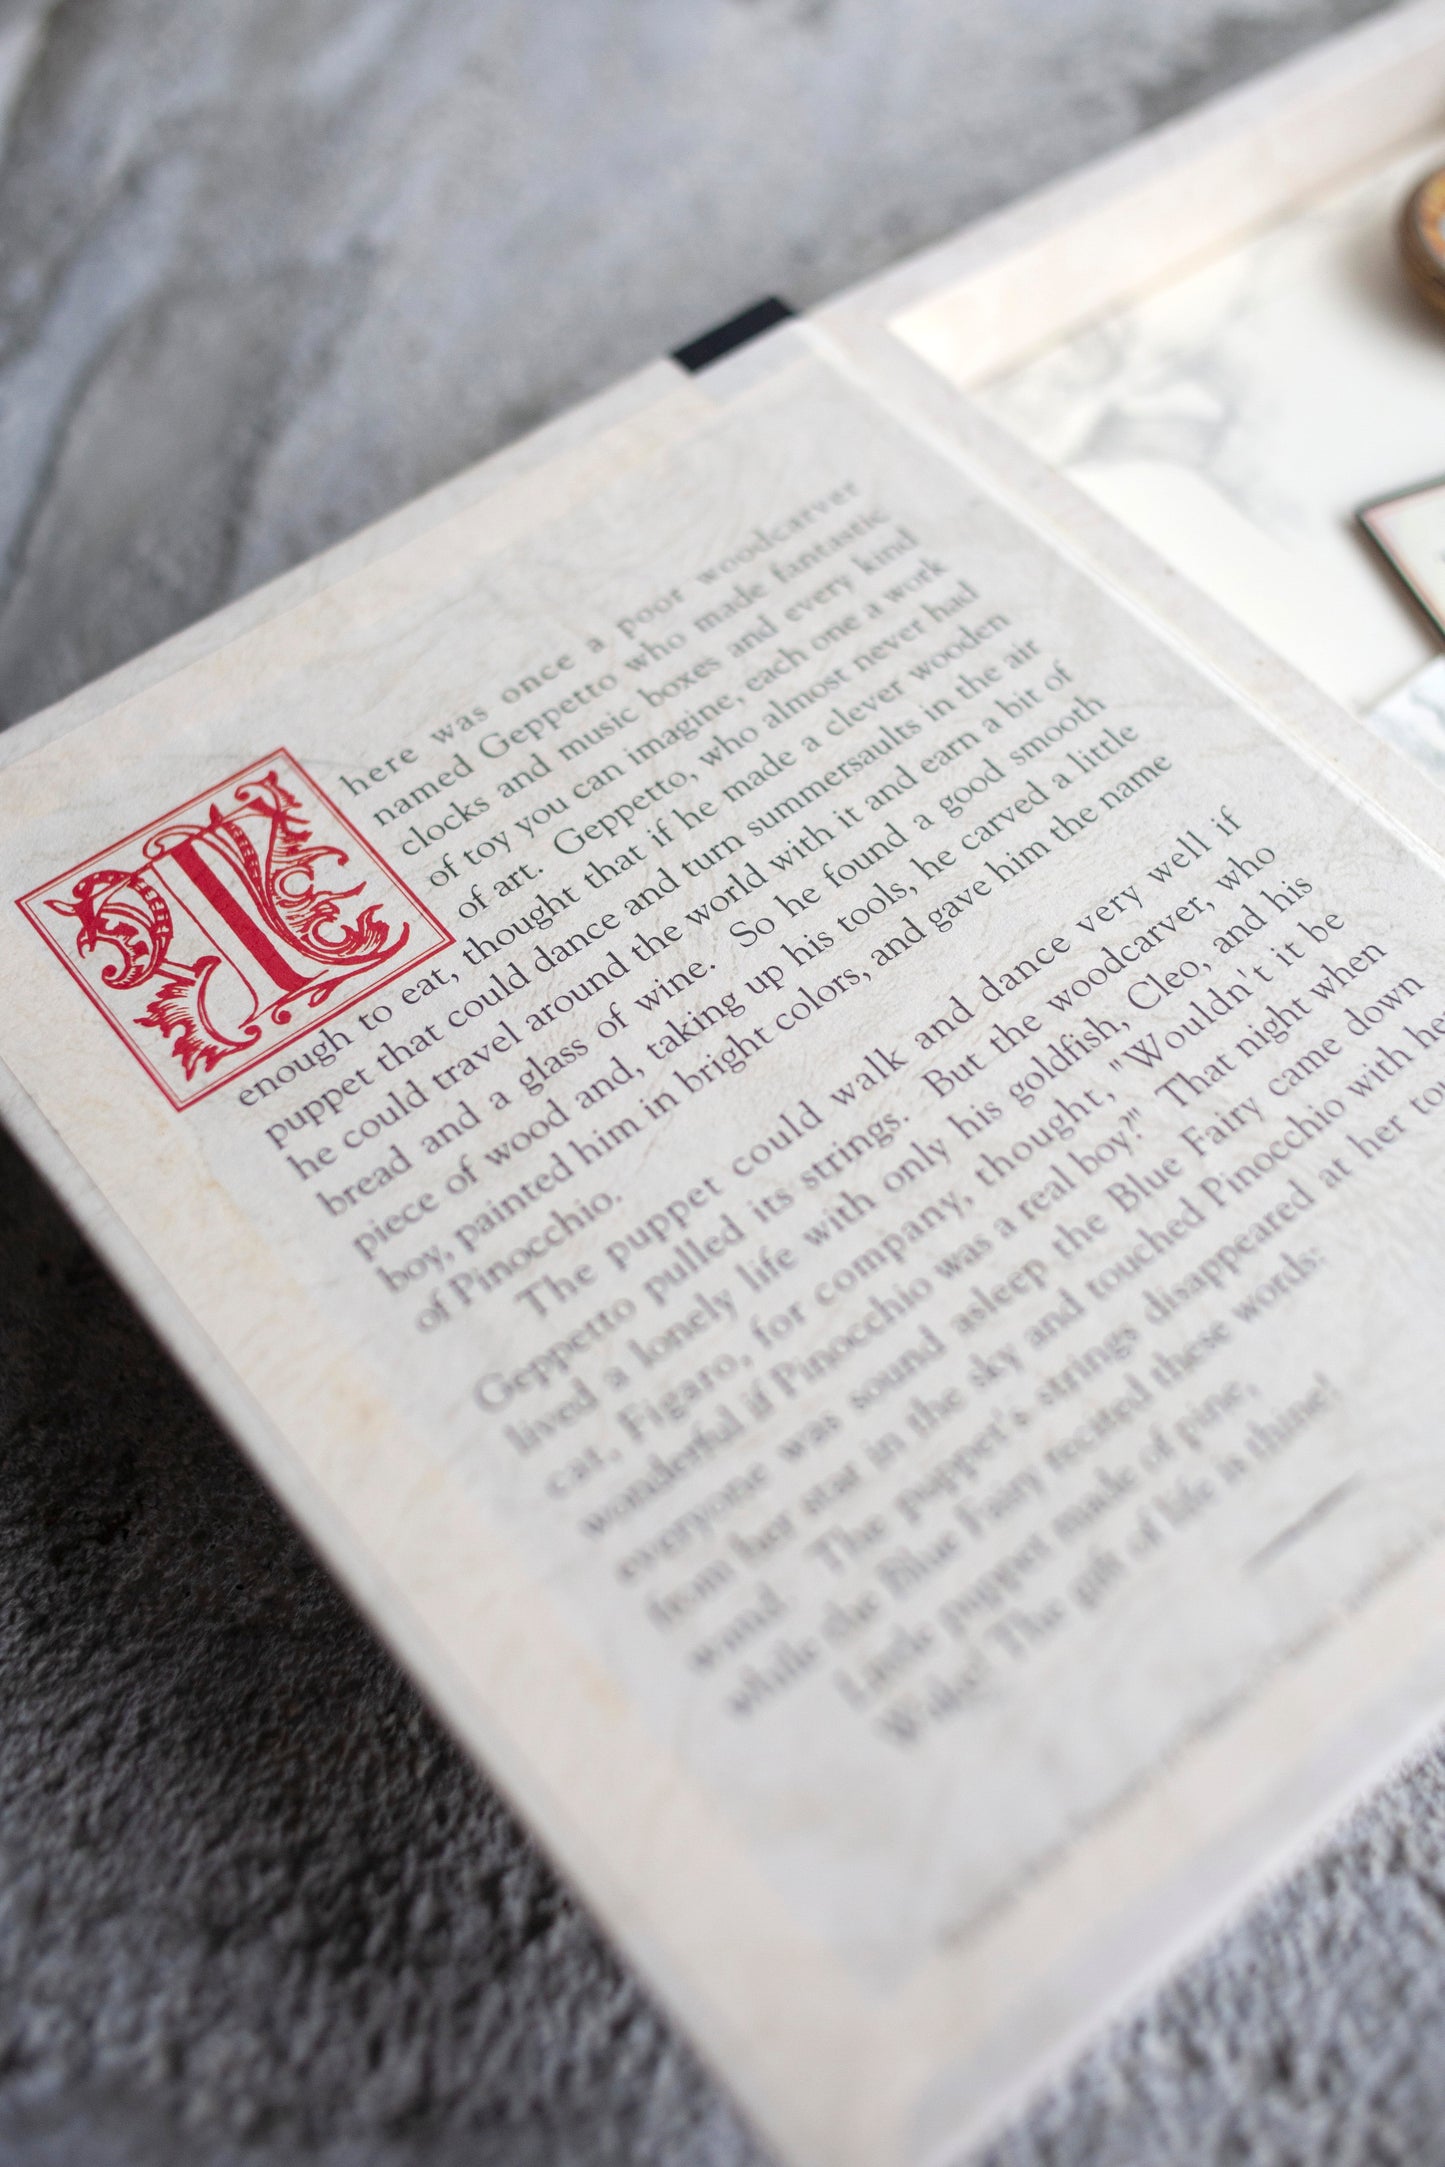 There was once a poor woodcarver
named Geppetto who made fantastic
clocks and music boxes and every kind
of toy you can imagine, each one a work
of art. Geppetto, who almost never had
enough to eat, thought that if he made a clever wooden
puppet that could dance and turn summersaults in the air
he could travel around the world with it and earn a bit of
bread and a glass of wine. So he found a good smooth
piece of wood and, taking up his tools, he carved a little
boy, painted him in bright colors, and gave him the name
of Pinocchio.
The puppet could walk and dance very well if
Geppetto pulled its strings. But the woodcarver, who
lived a lonely life with only his goldfish, Cleo, and his
cat, Figaro, for company, thought, "Wouldn't it be
wonderful if Pinocchio was a real boy?" That night when
everyone was sound asleep the Blue Fairy came down
from her star in the sky and touched Pinocchio with her
wand. The puppet's strings disappeared at her
while the Blue Fairy recited these words:
Little puppet made of pine,
Wake! The gift of life is thine!